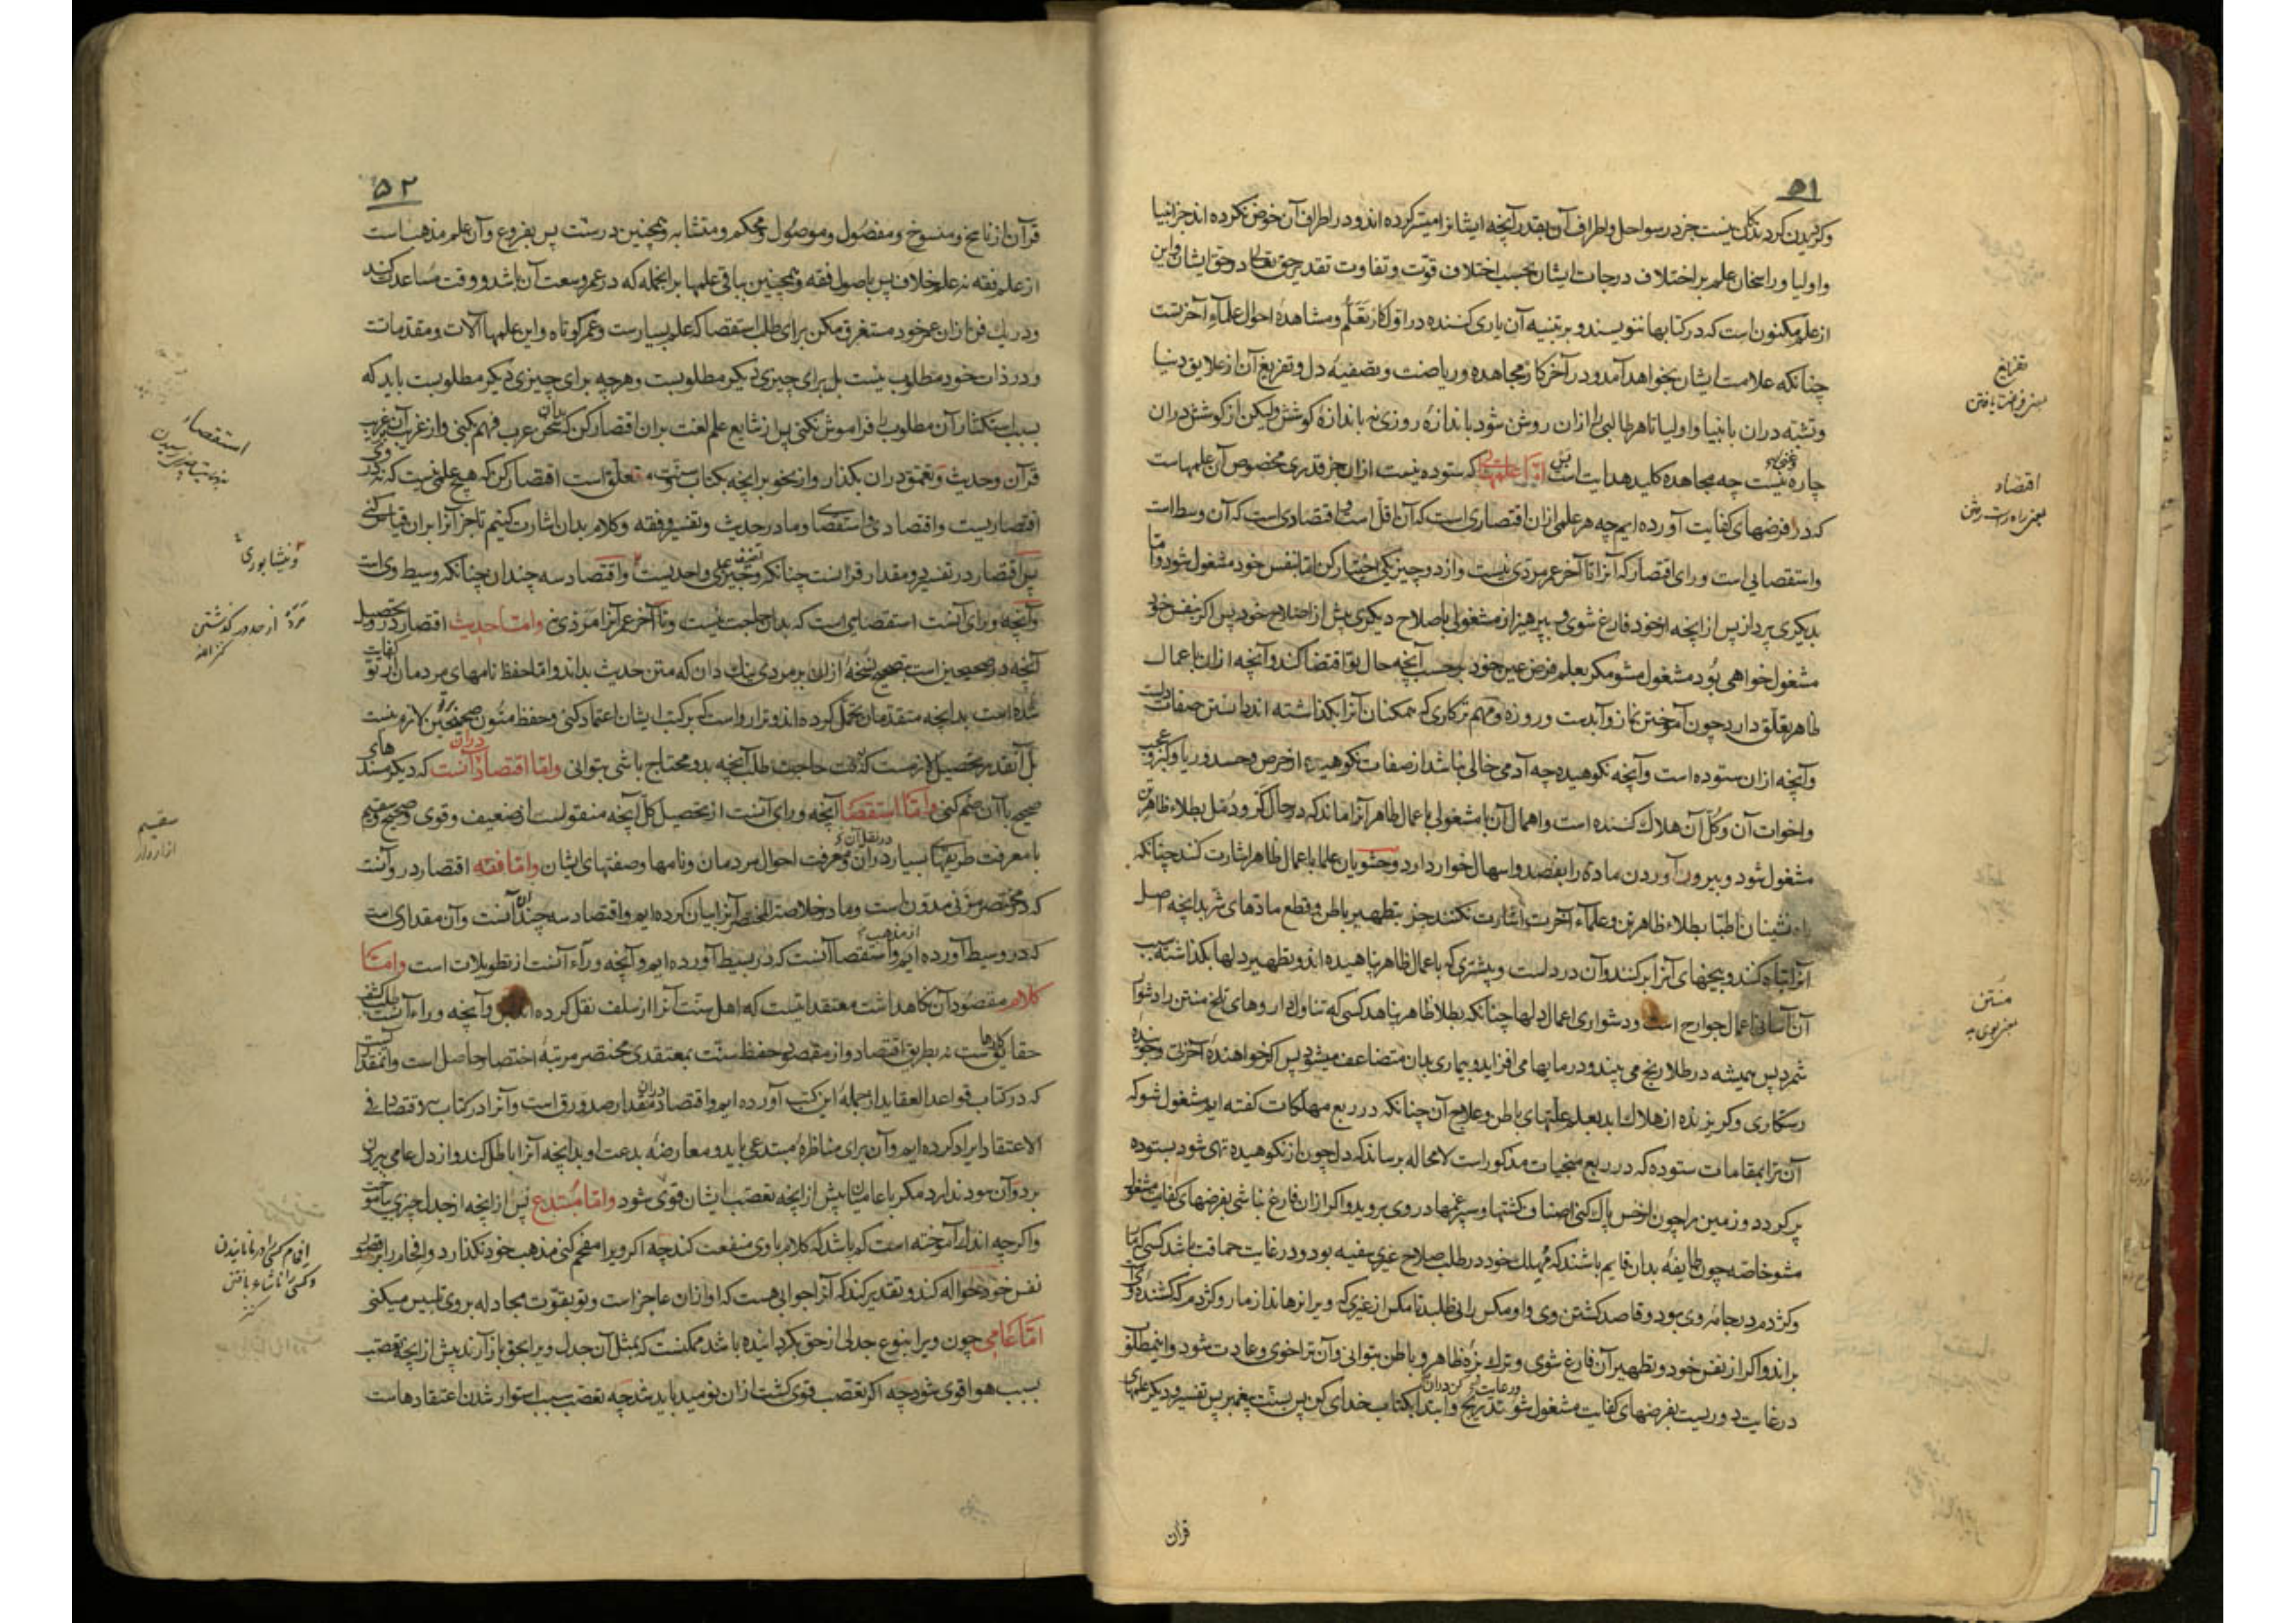 ۵۱
وگردیدن گرد تگل نیست جز در سواحل و اطراف آن بقدر آنچه ایشانرا میسر کرده اند و در اطراف آن خوض نکرده اند جز انبیا
و اولیا و راسخان علم بر اختلاف درجات ایشان بحسب اختلاف قوّت و تفاوت تقدیر حق تعالی در حق ایشان و این
از علم مکنون است که در کتابها ننویسند و بر تنبیه آن یاری کننده در اول کار تعلّم و مشاهدهٔ احوال علماء آخرتست
چنانکه علامت ایشان بخواهد آمد و در آخر کار مجاهده و ریاضت و تصفیهٔ دل و تفریغ آن از علایق دنیا
و تشبّه دران بانبیا و اولیا تا هر طالبی را ازان روشن شود باندازهٔ روزی نه باندازهٔ کوشش ولیکن از کوشش دران
چاره نیست چه مجاهده کلید هدایت است امّا علمها که ستوده نیست ازان جز قدری مخصوص آن علمهاست
که در فرضهای کفایت آورده ایم چه هر علمی ازان اقتصاری است که آن اقل است و اقتصادی است که آن وسط است
و استقصایی است ورای اقتصاد که آنرا تا آخر عمر مردّی نیست و از دو چیز یکی اختیار کن امّا بنفس خود مشغول شو و امّا
بدیگری پرداز پس از آنچه از خود فارغ شوی و بپرهیز از مشغولی باصلاح دیگری پیش از اصلاح خود پس اگر بنفس خود
مشغول خواهی بود مشغول مشو مگر بعلم فرض عین خود بر حسب آنچه حال تو اقتضا کند و آنچه ازان باعمال
ظاهر تعلّق دارد چون آموختن نماز و آبدست و روزه و مهم تر کاری که همکنان آنرا بگذاشته اند دانستن صفات دلست
و آنچه ازان ستوده است و آنچه نکوهیده چه آدمی خالی نباشد از صفات نکوهیده از حرص و حسد و ریا و کبر و عجب
و اخوات آن و کلّ آن هلاک کننده است و اهمال آن با مشغولی باعمال ظاهر آنرا ماند که در حال گر و دمل بطلاء ظاهر تن
مشغول شود و بیرون آوردن ماده را بفصد و اسهال خوار دارد و حشویان علما باعمال ظاهر اشارت کنند چنانکه
راه نشینان اطبّا بطلاء ظاهر تن و علماء آخرت اشارت نکنند جز بتطهیر باطن و قطع مادّهای شر بدانچه اصل
آنرا تباه کند و بیخهای آنرا بر کند و آن در دلست و بیشتری که باعمال ظاهر پناهیده اند و تطهیر دلها بگذاشته سبب
آن آسانی اعمال جوارح است و دشواری اعمال دلها چنانکه بطلا ظاهر پناهد کسی که تناول داروهای تلخ منتن را دشوار
شمرد پس همیشه در طلا رنج می بیند و در مادّها می افزاید و بیماری بدان متضاعف میشود پس اگر خواهندهٔ آخرتی و جوینده
رستگاری و گریزنده از هلاک ابد بعلم علّتهای باطن و علاج آن چنانکه در ربع مهلکات گفته ایم مشغول شو که
آن ترا بمقامات ستوده که در ربع منجیات مذکور است لا محاله برساند که دل چون از نکوهیده تهی شود بستوده
پر گردد و زمین را چون از خس پاک کنی اصناف کشتها و سپرغمها در وی بروید و اگر ازان فارغ نباشی بفرضهای کفایت مشغول
مشو خاصّه چون طایفهٔ بدان قایم باشند که مهلک خود در طلب صلاح غیری سفیه بود و در غایت حماقت باشد کسی که مار
و کژدم در جامهٔ وی بود و قاصد کشتن وی و او مگس رانی طلبد تا مگس از غیری که ویرا نرهاند از مار و کژدم که کشندهٔ وی
براند و اگر از نفس خود و تطهیر آن فارغ شوی و ترک بزهٔ ظاهر و باطن بتوانی و آن ترا خوی و عادت شود و این مطلوب
در غایت دوریست بفرضهای کفایت مشغول شو و رعایت تدریج کن دران و ابتدا بکتاب خدای کن پس بسنّت پیغمبر پس تفسیر و دیگر علمهای
قرآن
تفریغ
اقتصاد
یعنی راه راست رفتن
منتن
۵۲
قرآن از ناسخ و منسوخ و مفصول و موصول و محکم و متشابه و همچنین در سنّت پس بفروع و آن علم مذهب است
از علم فقه نه علم خلاف پس باصول فقه و همچنین بباقی علمها بر آنجمله که در عمر وسعت آن باشد و وقت مساعدت کند
و در یک فن ازان عمر خود مستغرق مکن برای طلب استقصا که علم بسیار است و عمر کوتاه و این علمها آلات و مقدماتست
و در ذات خود مطلوب نیست بل برای چیزی دیگر مطلوبست و هر چه برای چیزی دیگر مطلوبست باید که
بسبب استکثار آن مطلوب را فراموش نکنی پس از شایع علم لغت بران اقتصار کن که بدان سخن عرب فهم کنی و از غریب آن بر غریب
قرآن و حدیث و تعمّق دران بگذار و از نحو بر آنچه بکتاب و سنّت متعلّق است اقتصار کن که هیچ علمی نیست که نه در وی
اقتصاریست و اقتصادی و استقصایی و ما در حدیث و تفسیر و فقه و کلام بدان اشارت کنیم تا جز آنرا بران قیاس کنی
پس اقتصار در تفسیر دو مقدار قرآنست چنانکه وجیز تصنیف علی واحدیست و اقتصاد سه چندان چنانکه وسیط وی است
و آنچه ورای آنست استقصایی است که بدان حاجت نیست و تا آخر عمر آنرا مردّی نه و امّا حدیث اقتصار در وی تحصیل
آنچه در صحیحین است بتصحیح نسخهٔ ازان بر مردی نیک دان که متن حدیث بداند و امّا حفظ نامهای مردمان از تو کفایت
شده است بدانچه متقدمان تحمّل کرده اند و ترا رواست که بر کتب ایشان اعتماد کنی و حفظ متون صحیحین بر تو لازم نیست
بل آنقدر تحصیل لازمست که وقت حاجت طلب آنچه بدو محتاج باشی بتوانی و امّا اقتصاد دران آنست که دیگر مسندهای
صحیح با آن ضم کنی و امّا استقصا آنچه ورای آنست از تحصیل کلّ آنچه منقولست از ضعیف و قوی و صحیح و سقیم
با معرفت طریقهای بسیار در نقل آن و معرفت احوال مردمان و نامها و صفتهای ایشان و امّا فقه اقتصار در وآنست
که در مختصر مزنی مدوّن است و ما در خلاصة المختصر آنرا بیان کرده ایم و اقتصاد سه چندان آنست و آن مقداری است
که در وسیط آورده ایم و استقصا آنست که در بسیط آورده ایم و آنچه وراء آنست از تطویلات است و امّا
کلام مقصود آن نگاهداشت معتقداتیست که اهل سنّت آنرا از سلف نقل کرده اند و آنچه وراء آنست طلب کشف
حقایق کارهاست نه بطریق اقتصاد و از مقصود حفظ سنّت بمعتقدی مختصر مرتبهٔ اختصار حاصل است و آنقدر آنست
که در کتاب قواعد العقاید از جملهٔ این کتب آورده ایم و اقتصاد دران مقدار صد ورق است و آنرا در کتاب الاقتصاد فی
الاعتقاد ایراد کرده ایم و آن برای مناظرهٔ مبتدعی باید و معارضهٔ بدعت او بدانچه آنرا باطل کند و از دل عامی بیرون
برد و آن سود ندارد مگر با عامیان پیش از آنچه تعصّب ایشان قوی شود و امّا مبتدع پس از آنچه از جدل چیزی بیاموخت
و اگرچه اندک آموخته است کم باشد که کلام با وی منفعت کند چه اگر ویرا مفحم کنی مذهب خود نگذارد و افحام را بر قصور
نفس خود حواله کند و تقدیر کند که آنرا جوابی هست که او ازان عاجز است و تو بقوّت مجادله بر وی تلبیس میکنی
امّا عامی چون ویرا بنوع جدلی از حق بگردانیده باشد ممکنست که بمثل آن جدل ویرا بحق باز آرند پیش از آنچه تعصّب
بسبب هوا قوی شود چه اگر تعصب قوی گشت ازان نومید باید شد چه تعصّب سبب استوار شدن اعتقادهاست
استقصاء
و نیشابوری
مردّ از حد در گذشتن
سقیم